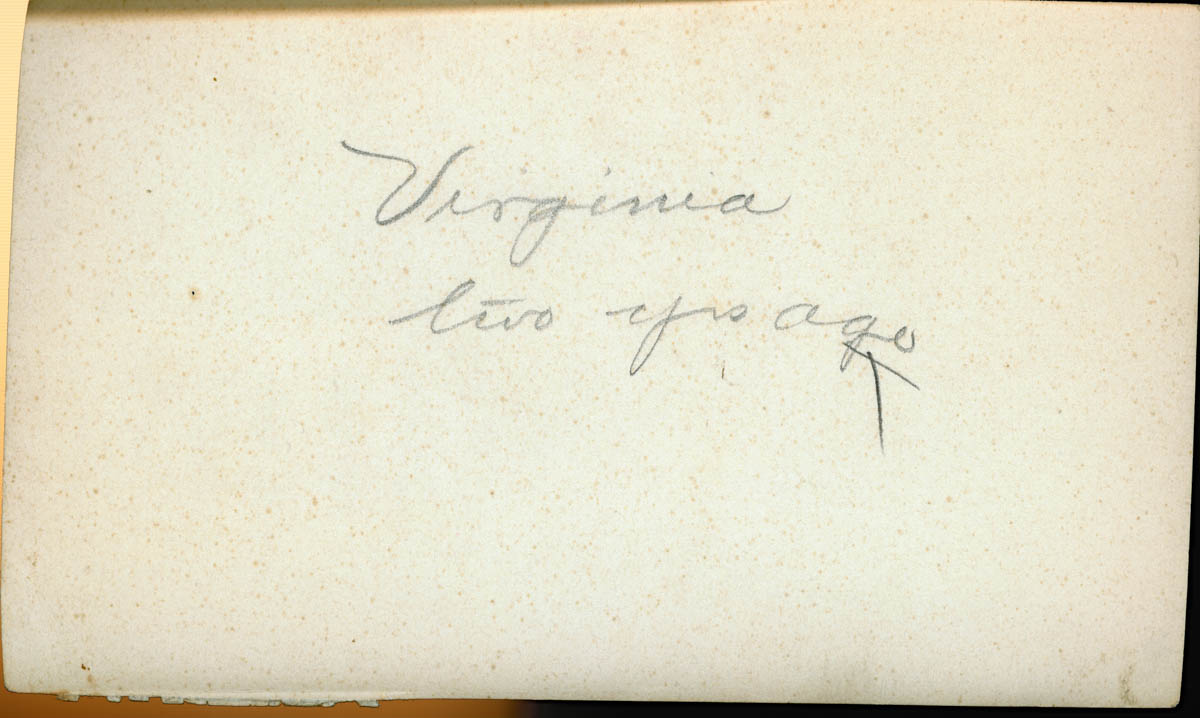 Virginia
two yrs ago